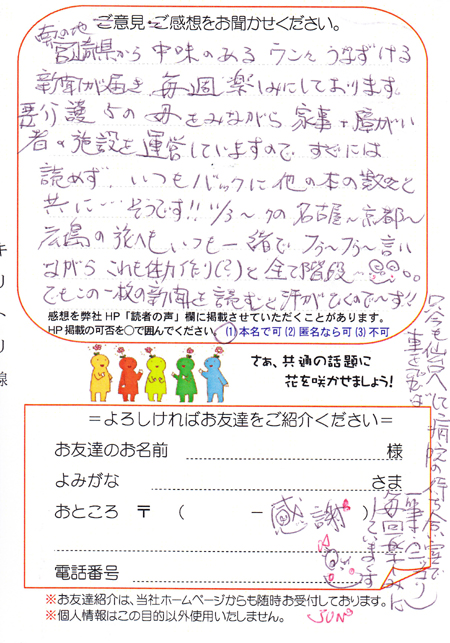 ご意見・ご感想をお聞かせください。
南の地
宮崎県から 中味のある ウンとうなずける
新聞が届き 毎週 楽しみにしております。
要介護5の母をみながら 家事+障がい
者の施設を運営していますので すぐには
読めず いつもバックに他の本の数々と
共に…そうです!! 11/3〜7の名古屋〜京都〜
広島の旅へも いつも一緒で フゥ〜フゥ〜言い
ながら これも体力作り(?)と全て階段…
でもこの一枚の新聞を読むと汗がひくので〜す!!
感想を弊社HP「読者の声」欄に掲載させていただくことがあります。
HP掲載の可否を○で囲んでください。 (1)本名で可 (2)匿名なら可 (3)不可
さぁ、共通の話題に
花を咲かせましょう!
キリトリ線
=よろしければお友達をご紹介ください=
お友達のお名前 様
よみがな さま
おところ 〒 ( − )
電話番号
感謝
毎回楽しみに
しています
JUN
※お友達紹介は、当社ホームページからも随時お受付しております。
※個人情報はこの目的以外使用いたしません。